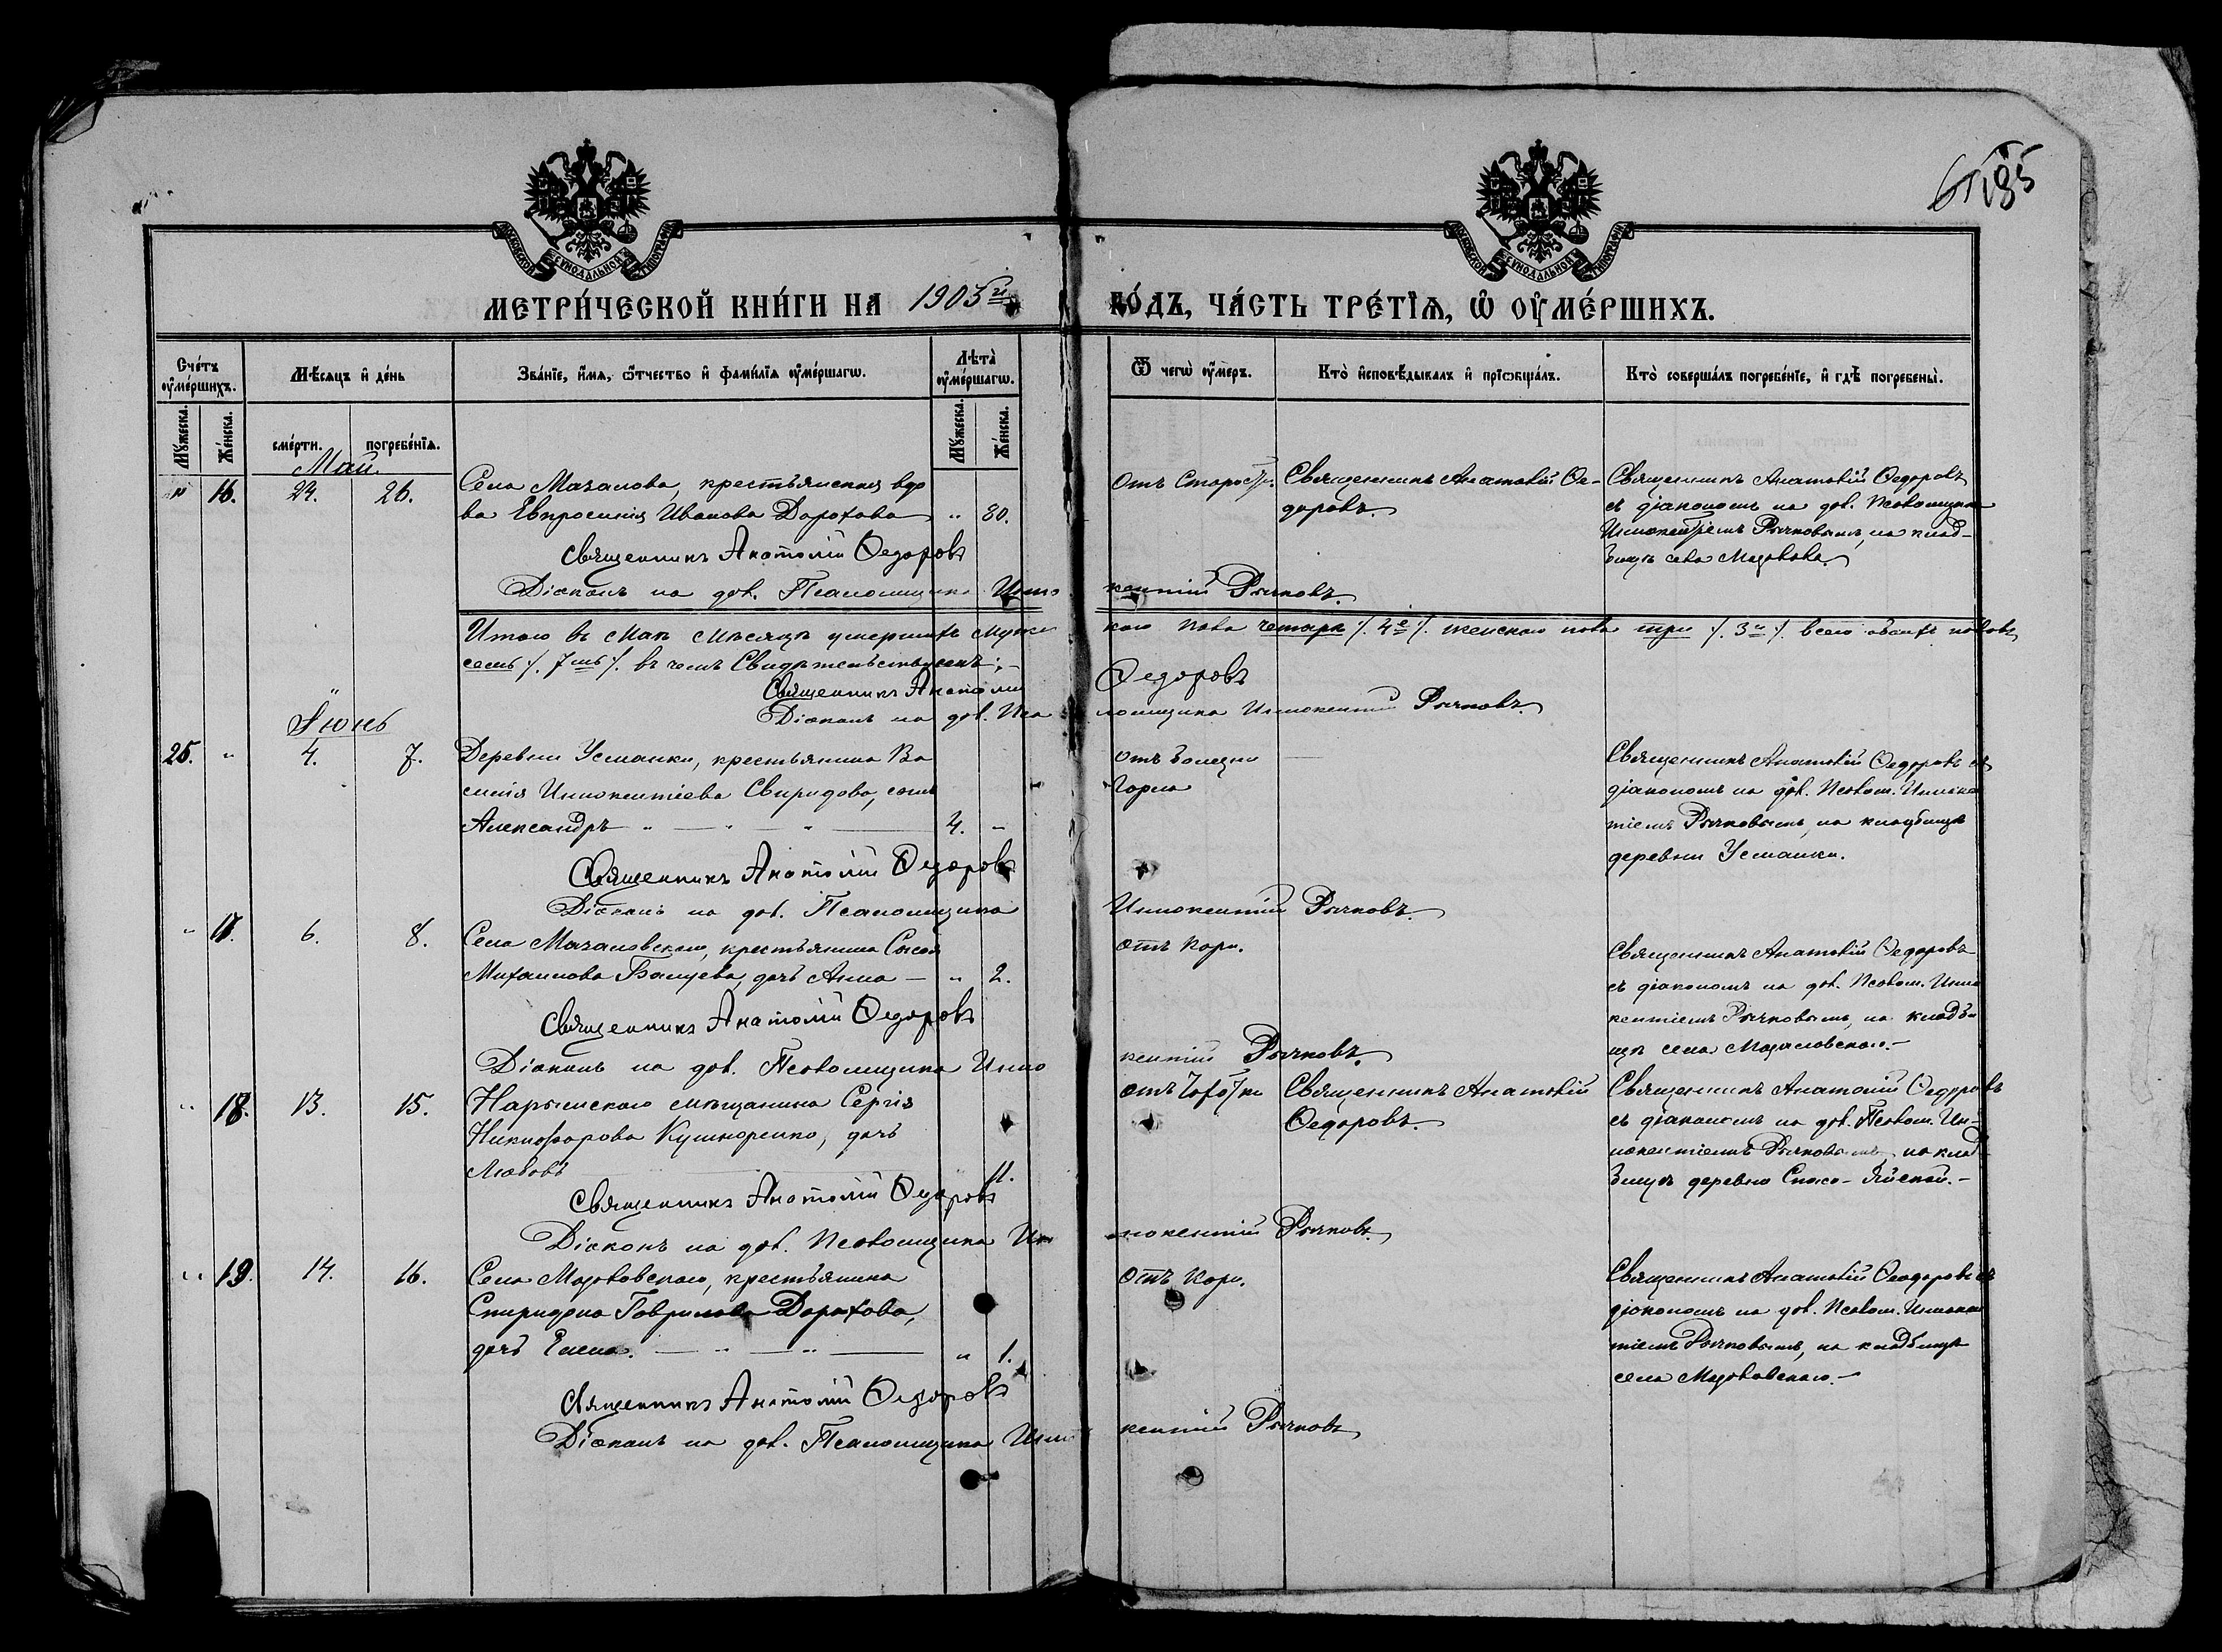 185
МЕТРИ́ЧЕСКОЙ КНИ́ГИ НА 1905й ГО́ДЪ, ЧА́СТЬ ТРЕ́ТІѦ, Ѡ ОУМЕ́РШИХЪ.
Сче́тъ оуме́ршихъ.
Мѣ́сяцъ и де́нь
Зва́нїе, и́мѧ, ѻ́тчество и фами́лїѧ оуме́ршагѡ.
Лѣта̀ оуме́ршагѡ.
Ѿ чегѡ̀ оу́меръ.
Кто̀ и҆сповѣ́дывалъ и҆ прїѡбща́лъ.
Кто̀ соверша́лъ погребе́нїе, и҆ гдѣ̀ погребены̀.
Мꙋ́жеска.
Же́нска.
сме́рти.
погребе́нїѧ.
Мꙋ́жеска.
Же́нска.
Май.
" 16. 24. 26.
Села Мазалова, крестьянская вдо
ва Евпросинія Иванова Дорохова " 80.
Отъ Старости.
Священникъ Анатолій Ѳе-
доровъ.
Священникъ Анатолій Ѳедоровъ
съ діакономъ на дол. Псаломщика
Иннокентіемъ Рычковымъ, на клад-
бищѣ села Мазалова
Священникъ Анатолій Ѳедоровъ
Діаконъ на дол. Псаломщика Инно
кентій Рычковъ.
Итого въ Маѣ мѣсяцѣ умершихъ мужс
каго пола четыре /. 4е /. женскаго пола три /. 3и /. всего обоего половъ
семь /. 7мь /. въ чемъ Свидѣтельствуемъ:-
Священникъ Анатолій Ѳедоровъ
Діаконъ на дол. Пса
ломщика Иннокентій Рычковъ.
Іюнь
25. " 4. 7.
Деревни Усманки, крестьянина Ва
силія Иннокентіева Свиридова, сынъ
Александръ " — " — " — 4. "
отъ болѣзни
Горла
Священникъ Анатолій Ѳедоровъ съ
діакономъ на дол. Псалом. Иннокен
тіемъ Рычковымъ, на кладбищѣ
деревни Усманки.
Священникъ Анатолій Ѳедоровъ
Діаконъ на дол. Псаломщика
Иннокентій Рычковъ.
" 17. 6. 8.
Села Мазаловскаго, крестьянина
Михаилова дочь Анна — " 2.
отъ Кори.
Священникъ Анатолій Ѳедоровъ
съ діакономъ на дол. Псалом. Инно
кентіемъ Рычковымъ, на кладби
щѣ села Мазаловскаго.-
Священникъ Анатолій Ѳедоровъ
Діаконъ на дол. Псаломщика Инно
кентій Рычковъ.
" 18. 13. 15.
Нарымскаго мѣщанина Сергія
Никифорова Кушноренко, дочь
Любовь " 11.
отъ Чахотки
Священникъ Анатолій
Ѳедоровъ.
Священникъ Анатолій Ѳедоровъ
съ діакономъ на дол. Псалом. Ин-
нокентіемъ Рычковымъ, на клад
бищѣ деревни Спасо-Яйской.-
Священникъ Анатолій Ѳедоровъ
Діаконъ на дол. Псаломщика Ин
нокентій Рычковъ.
" 19. 14. 16.
Села Мазаловскаго, крестьянина
Спиридона Гаврилова Дорохова,
дочь Елена. — " — " — " 1.
Отъ Кори.
Священникъ Анатолій Ѳеодоровъ съ
діакономъ на дол. Псалом. Иннокен
тіемъ Рычковымъ, на кладбищѣ
села Мазаловскаго.-
Священникъ Анатолій Ѳедоровъ
Діаконъ на дол. Псаломщика Инно
кентій Рычковъ